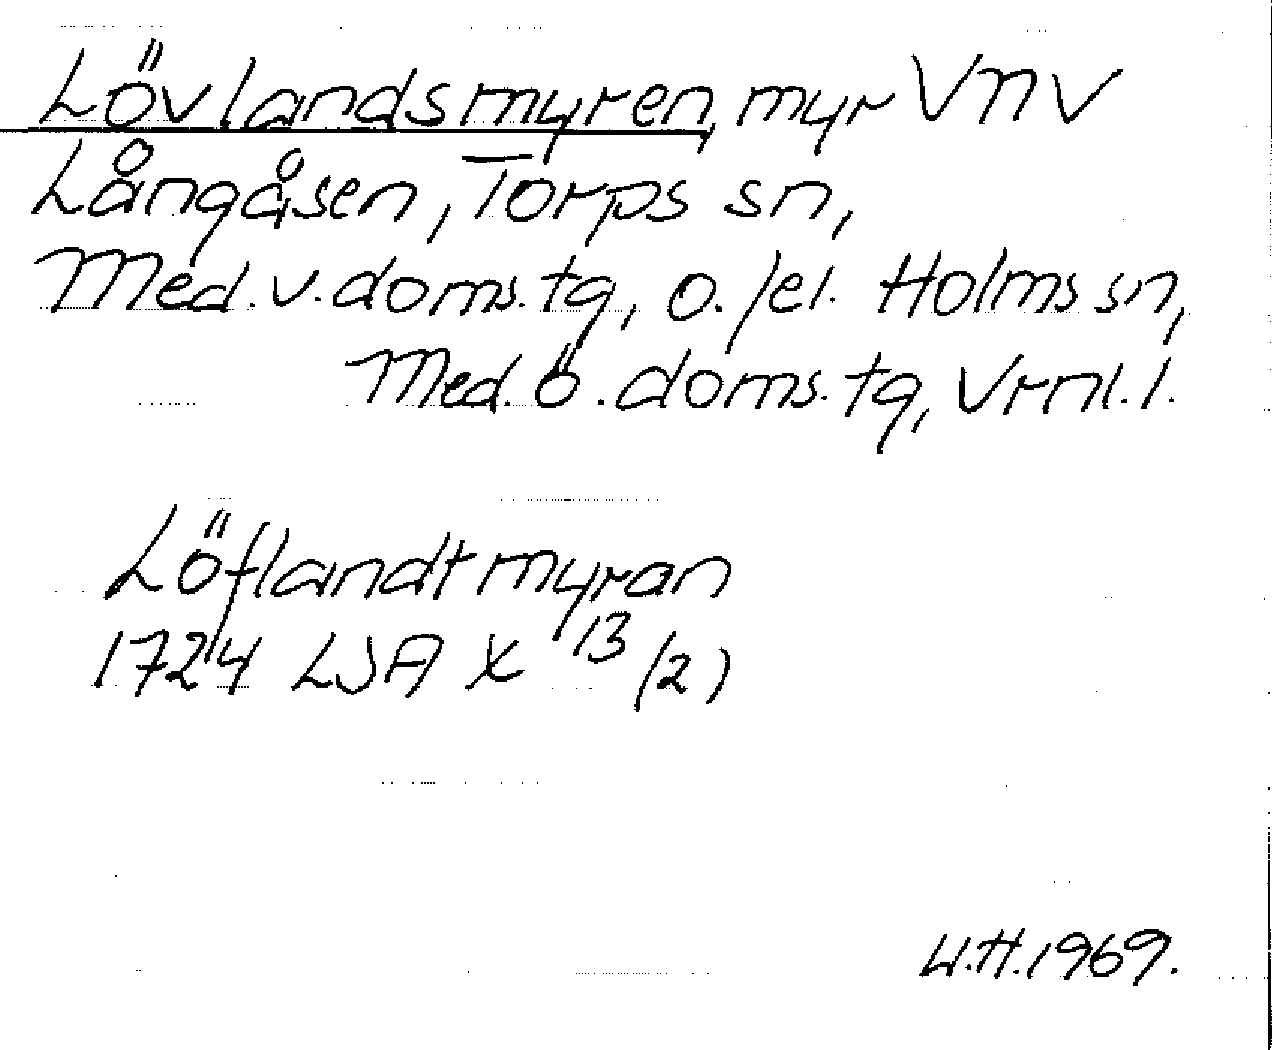 Lövlandsmyren, myr VNV
Långåsen, Torps sn,
Med. v. doms. tg, o./el. Holms sn,
Med. ö. doms. tg, Vrnl. l.
Löflandtmyran
1724 LSA X 13/(2)
L.H. 1969.